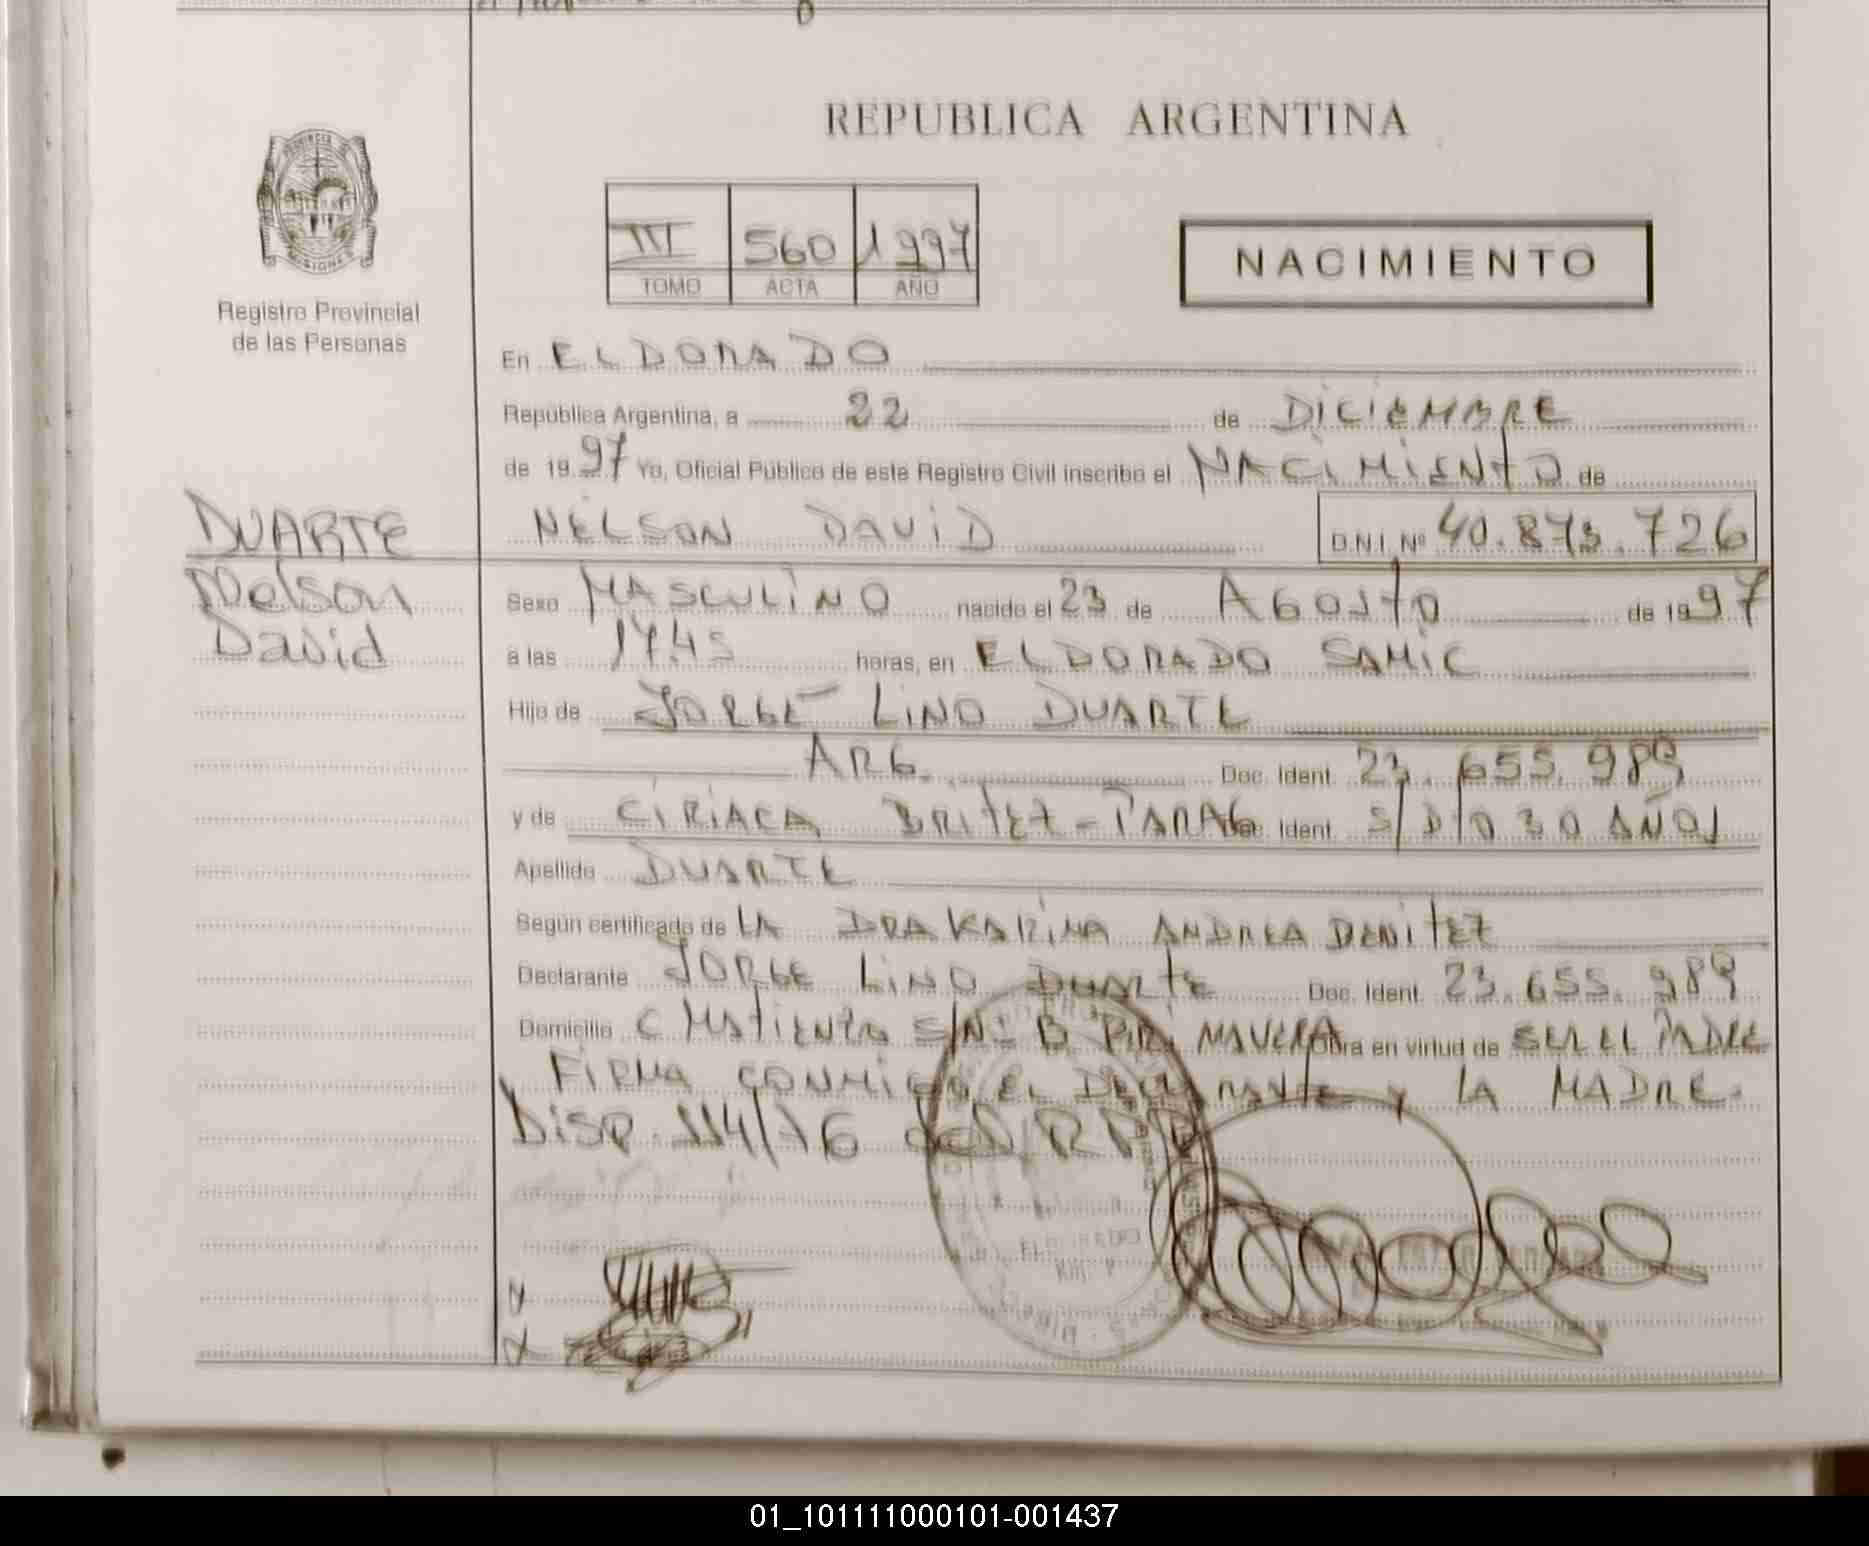 REPUBLICA ARGENTINA
PROVINCIA
MISIONES
Registro Provincial
de las Personas
III 560 1997
TOMO ACTA AÑO
NACIMIENTO
En ELDORADO
República Argentina, a 22 de DICIEMBRE
de 19 97 Yo, Oficial Público de este Registro Civil inscribo el NACIMIENTO de
DUARTE
Nelson
David
NELSON DAVID D.N.I. Nº 40.873.726
Sexo MASCULINO nacido el 23 de AGOSTO de 19 97
a las 17.45 horas, en ELDORADO SAMIC
Hijo de JORGE LINO DUARTE
ARG. Doc. Ident. 23.655.989
y de CIRIACA BRITEZ - PARAG Doc. Ident. S/D/O 30 AÑOS
Apellido DUARTE
Según certificado de LA DRA KARINA ANDREA BENITEZ
Declarante JORGE LINO DUARTE Doc. Ident. 23.655.989
Domicilio C MATIENZO S/Nº B PRIMAVERA Obra en virtud de SER EL PADRE
FIRMA CONMIGO EL DECLARANTE Y LA MADRE.
DISP. 114/76 del R P P
ELDORADO
01_101111000101-001437